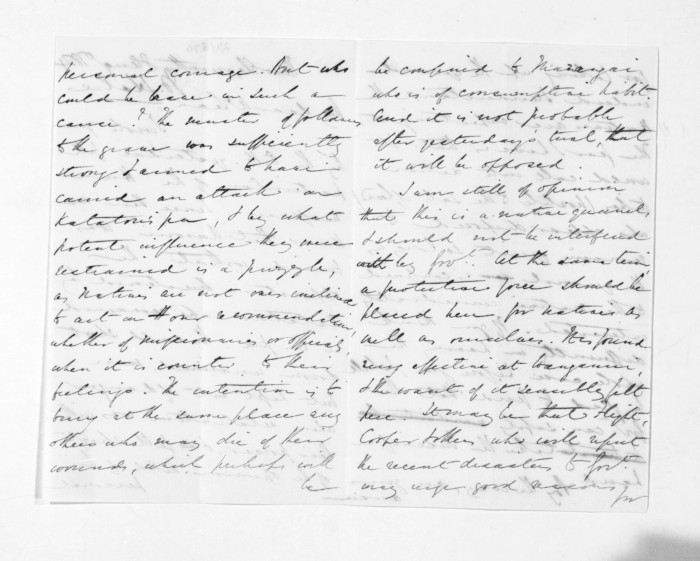 personal courage. But who
could be base in such a
cause? The number of followers
to the grave was sufficiently
strong & armed to have
carried an attack on
Katatoris pa, & by what
potent influence they were
restrained is a puzzle,
as natives are not over inclined
to act on our recommendation,
whether of missionaries or officials,
when it is counter to their
feelings. The intention is to
bury at the same place any
others who may die of their
wounds, which perhaps will
be
be confined to
who is of consumptive habit.
And it is not probable
after yesterday's trial, that
it will be opposed.
I am still of opinion
that this is a native quarrel,
& should not be interfered
with by Govt. At the same time
a protective force should be
placed here for natives as
well as ourselves. It is found
very effective at Wanganui,
& the want of it sensibly felt
here. It may be that Flight,
Cooper & others who will report
the recent disasters to Govt.
may urge good reasons
for